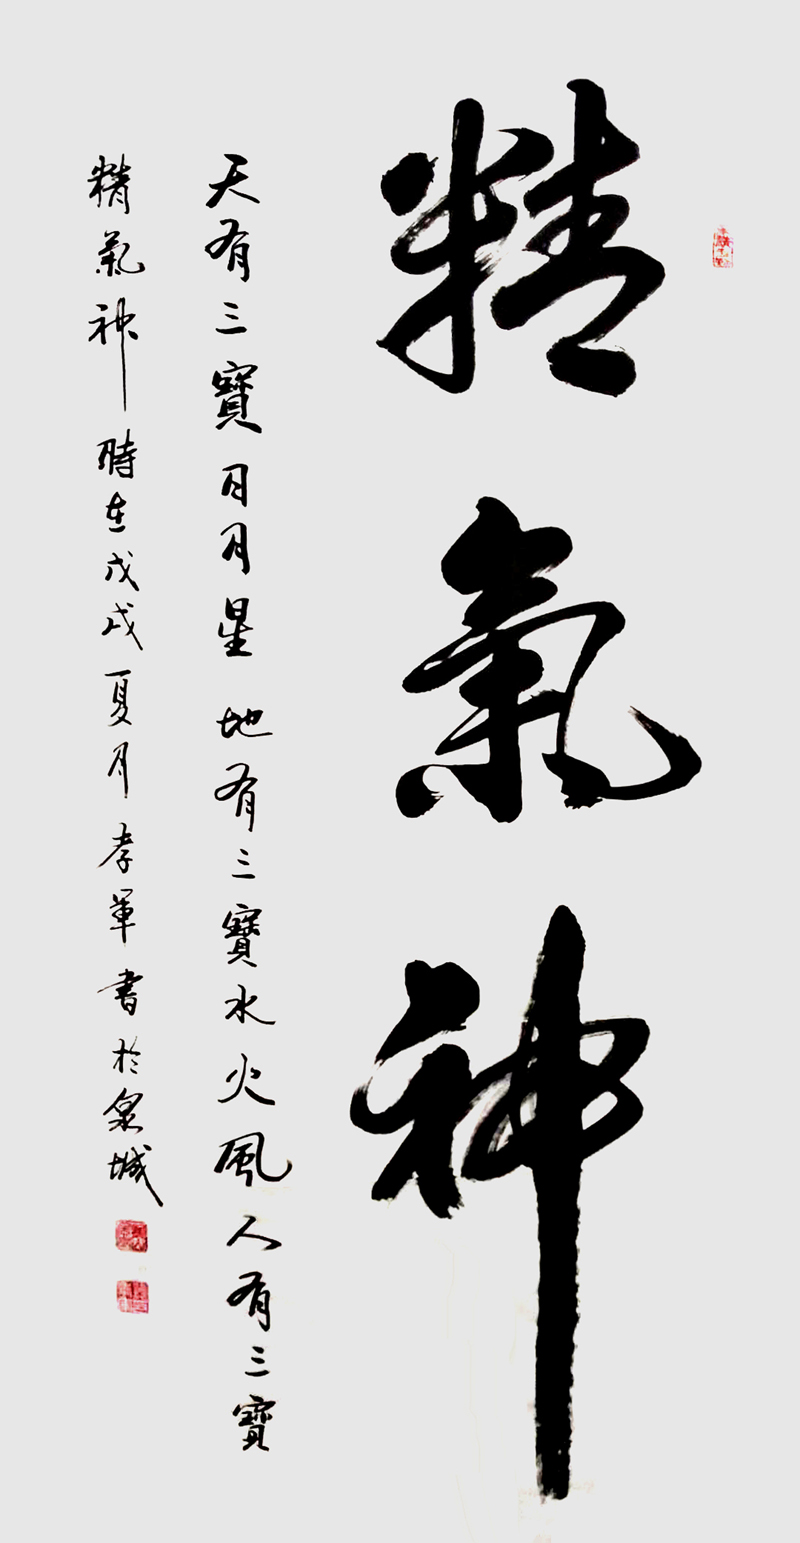 精氣神
天有三寶日月星地有三寶水火風人有三寶
精氣神時在戊戌夏月孝軍書於泉城